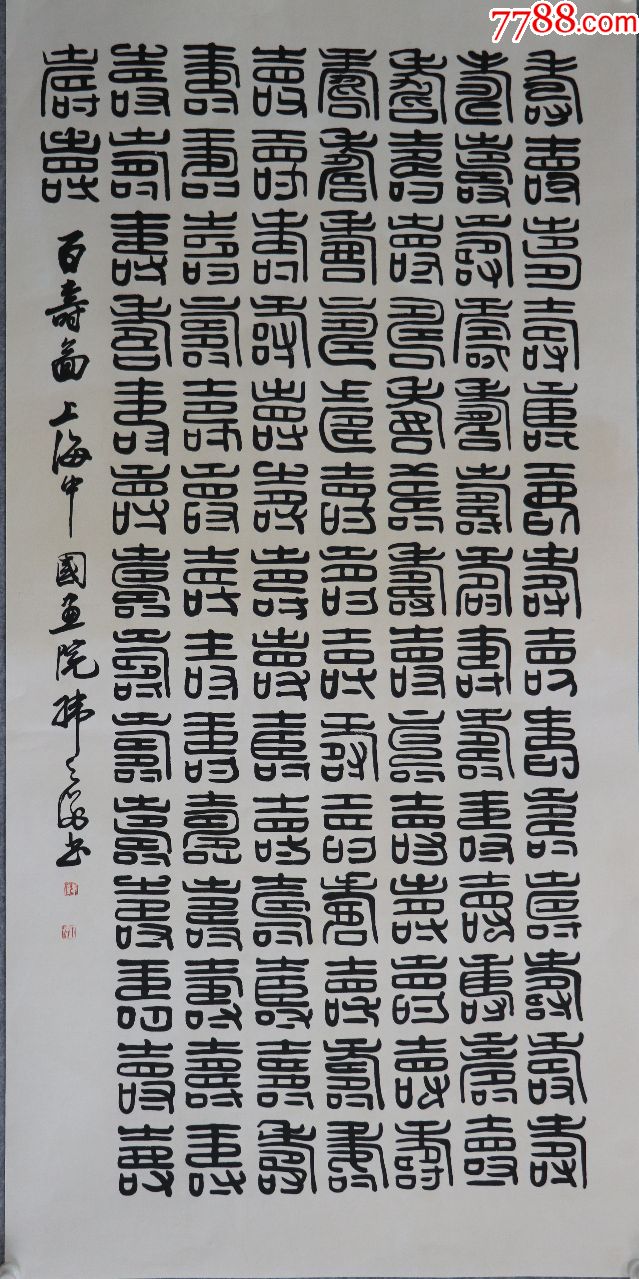 7788.com
壽壽壽壽壽壽壽壽壽壽壽壽壽壽
壽壽壽壽壽壽壽壽壽壽壽壽壽壽
壽壽壽壽壽壽壽壽壽壽壽壽壽壽
壽壽壽壽壽壽壽壽壽壽壽壽壽壽
壽壽壽壽壽壽壽壽壽壽壽壽壽壽
壽壽壽壽壽壽壽壽壽壽壽壽壽壽
壽壽壽壽壽壽壽壽壽壽壽壽壽壽
壽壽
百壽啚 上海中國画院 韩 书